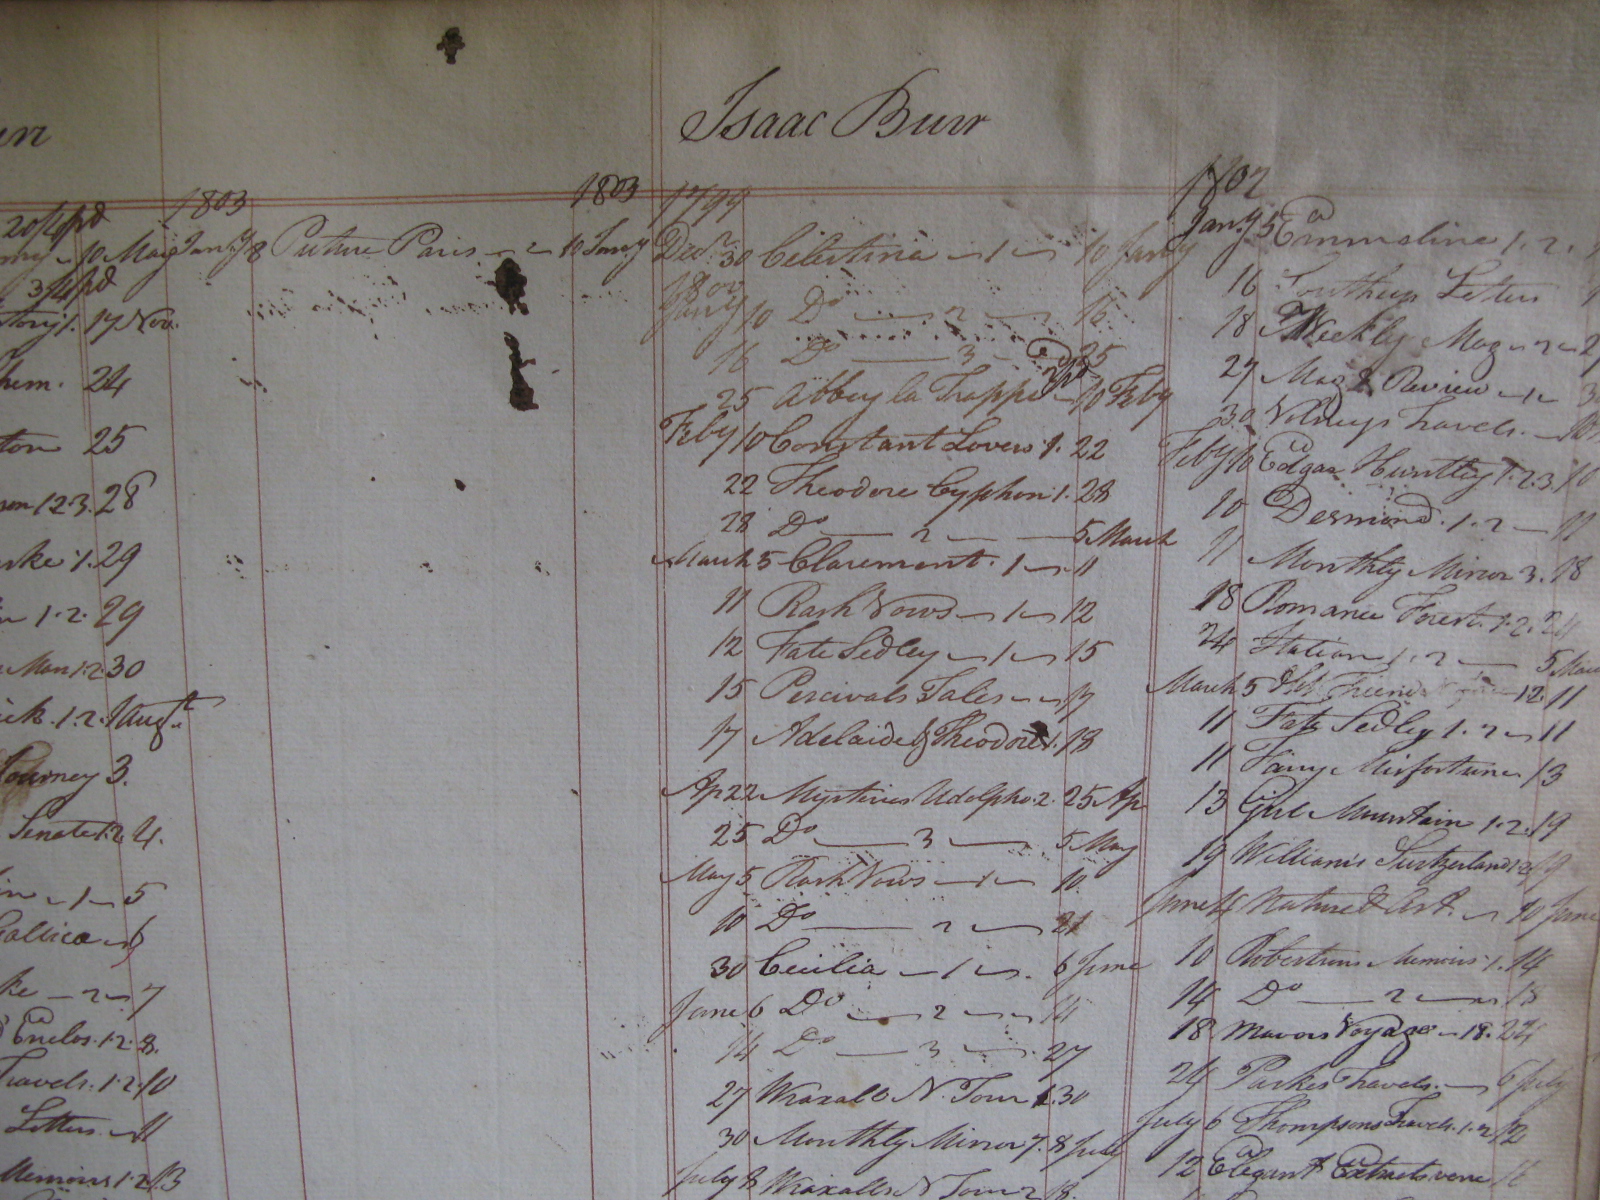 Isaac Burr
20 Sept pd
10 May
3/4 pd
17 Nov.
24
ton 25
1 2 3. 28
1. 29
1. 2. 29
Man 1 2. 30
1. 2. 1 Augt.
Journey 3.
Senate 1 2 4.
1 5
Gallica 6
2 7
Enclos. 1. 2. 8.
Travels. 1. 2. 10
Letters. 11
Memoirs 1. 2. 13
1803 1803
Jany 8 Picture Paris 2 10 Jany
1799
Decr. 30 Celestina 1 10 Jany
1800
Jany 10 Do 2 16
16 Do 3 25
25 Abbey la Trappe 10 Feby
Feby 10 Constant Lovers 1. 22
22 Theodore Cyphon 1. 28
28 Do 2 5 March
March 5 Claremont. 1 11
11 Rash Vows 1 12
12 Fate Sedley 1 15
15 Percivals Tales 17
17 Adelaide & Theodore 1. 18
Ap 22 Mysteries Udolpho. 2. 25 Ap
25 Do 3 5 May
May 5 Rash Vows 1 10
10 Do 2 21
30 Cecilia 1 6 June
June 6 Do 2 14
14 Do 3 27
27 Wraxalls N. Tour 1. 30
30 Monthly Mirror 7. 8 July
July 8 Wraxalls N Tour 2 18.
1802
Jany 5 Emmeline 1. 2.
16 Letters
18 Weekly Mag 2
27 Mag & Review 1
30 Volneys Travels.
Feby 10 Edgar Huntley 1. 2. 3 10
10 Desmond. 1. 2 11
11 Monthly Mirror 3. 18
18 Romance Forest. 1. 2. 24
24 Italian 1. 2 5 March
March 5 Friend 1 2. 11
11 Fate Sedley 1. 2 11
11 Fairy Misfortune 13
13 Girl Mountain 1. 2. 19
19 Williams's Switzerland 1 2 19
June 4 Nature & Art. 10 June
10 Robertsons Memoirs 1. 14
14 Do 2 18
18. Mavors Voyages 18. 24
24 Parkes Travels. 6 July
July 6 Thompsons Travels. 1. 2 12
12 Elegant Extracts verse